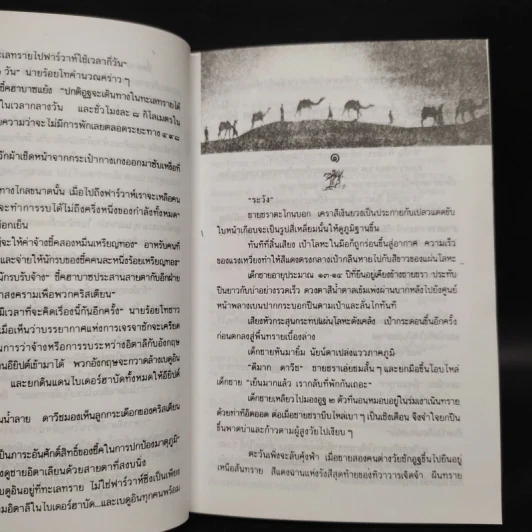 ะเลทรายไปฟาร์วาห์ใช้เวลากี่วัน"
วัน" นายร้อยโทคำนวณคร่าว ๆ
ชี้คฮาบาซแย้ง "ปกติอูฐจะเดินทางในทะเลทรายได้
ในเวลากลางวัน และชั่วโมงละ ๘ กิโลเมตรใน
ยความว่าจะไม่มีการพักเลยตลอดระยะทาง ๔๙๘
วักผ้าเช็ดหน้าจากกระเป๋ากางเกงออกมาซับเหงื่อที่
ทางไกลขนาดนั้น เมื่อไปถึงฟาร์วาห์เราจะเหลือคน
จะทำการรบได้ไม่ถึงครึ่งหนึ่งของกำลังทั้งหมด"
อกเย็น
จะให้ค่าจ้างชี้คสองหมื่นเหรียญทอง" อาหรับคนที่
และจ่ายให้นักรบของชี้คคนละหนึ่งร้อยเหรียญทอง"
นักรบรับจ้าง" ชี้คฮาบาซประสานสายตากับอีกฝ่าย
าสงครามเพื่อพวกคริสเตียน"
มีเวลาที่จะคิดเรื่องนี้กันอีกครั้ง" นายร้อยโทชาว
เมื่อเห็นว่าบรรยากาศแห่งการเจรจาชักจะเครียด
การว่าจ้างหรือการรบระหว่างอิตาลีกับอังกฤษ
อียิปต์เข้ามาได้ พวกอังกฤษจะกวาดล้างเบดูอิน
และยกดินแดนไบเดอร์ฮาบัดทั้งหมดให้อียิปต์
น้ำลาย ดาวิชมองเห็นลูกกระเดือกของคริสเตียน
เป็นภาระอันศักดิ์สิทธิ์ของชี้คในการปกป้องมาตุภูมิ"
งดูชายอิตาเลียนด้วยสายตาที่สงบนิ่ง
บดูอินอยู่ที่ทะเลทราย ไม่ใช่ฟาร์วาห์ซึ่งเป็นเพียง
อิตาลีในไบเดอร์ฮาบัด...และเบดูอินทุกคนพร้อม
๑
"ระวัง"
ชายชราตะโกนบอก เคราสีเงินยวงเป็นประกายกับเปลวแดดขับ
ใบหน้าเกือบจะเป็นรูปสี่เหลี่ยมนั้นให้ดูภูมิฐานขึ้น
ทันทีที่สิ้นเสียง เป้าโลหะในมือก็ถูกร่อนขึ้นสู่อากาศ ความเร็ว
ของแรงเหวี่ยงทำให้สีแดงตรงกลางเป้ากลืนหายไปกับสีขาวของแผ่นโลหะ
เด็กชายอายุประมาณ ๑๓-๑๔ ปีที่ยืนอยู่เคียงข้างชายชรา ประทับ
ปืนยาวกับบ่าอย่างรวดเร็ว ดวงตาสีน้ำตาลเข้มเพ่งผ่านบากหลังไปยังศูนย์
หน้าพลางเบนปากกระบอกปืนตามเป้าและลั่นไกทันที
เสียงหัวกระสุนกระทบแผ่นโลหะดังเคล้ง เป้ากระดอนขึ้นอีกครั้ง
ก่อนตกลงสู่พื้นทรายเบื้องล่าง
เด็กชายหันมายิ้ม นัยน์ตาเปล่งแววภาคภูมิ
"ดีมาก ดาวิช" ชายชราเอ่ยชมสั้น ๆ และยกมือขึ้นโอบไหล่
เด็กชาย "เย็นมากแล้ว เรากลับที่พักกันเถอะ"
เด็กชายเหลียวไปมองอูฐ ๒ ตัวที่นอนหมอบอยู่ในร่มเงาเนินทราย
ด้วยท่าทีอิดออด ต่อเมื่อชายชราบีบไหล่เบา ๆ เป็นเชิงเตือน จึงจำใจยกปืน
ขึ้นพาดบ่าและก้าวตามผู้สูงวัยไปเงียบ ๆ
ตะวันเพิ่งจะลับคุ้งฟ้า เมื่อชายสองคนต่างวัยชักอูฐขึ้นไปยืนอยู่
เหนือสันทราย สีแดงฉานแห่งรังสีสุดท้ายของทิวาวารเจิดจ้า ผืนทราย